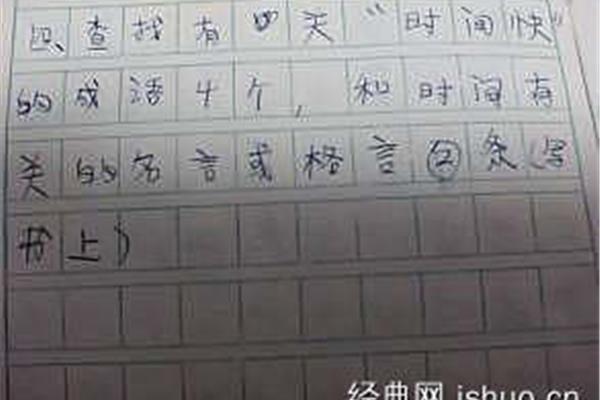 四、查找有关“时间快”
的成语4个,和时间有
关的名言或格言②条(写
书上)
经典网 ishuo.cn